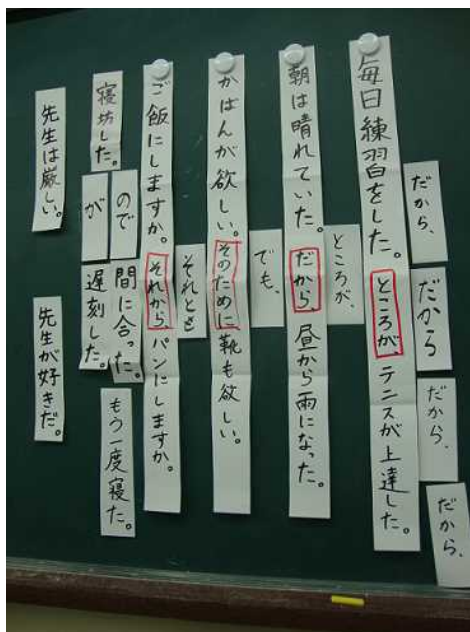 だから、
だから
だから、
だから、
毎日練習をした。ところが、テニスが上達した。
ところが、
朝は晴れていた。だから、昼から雨になった。
でも、
かばんが欲しい。そのために靴も欲しい。
それとも
ご飯にしますか。それから、パンにしますか。
寝坊した。
ので
が
間に合った。
遅刻した。
もう一度寝た。
先生は厳しい。
先生が好きだ。